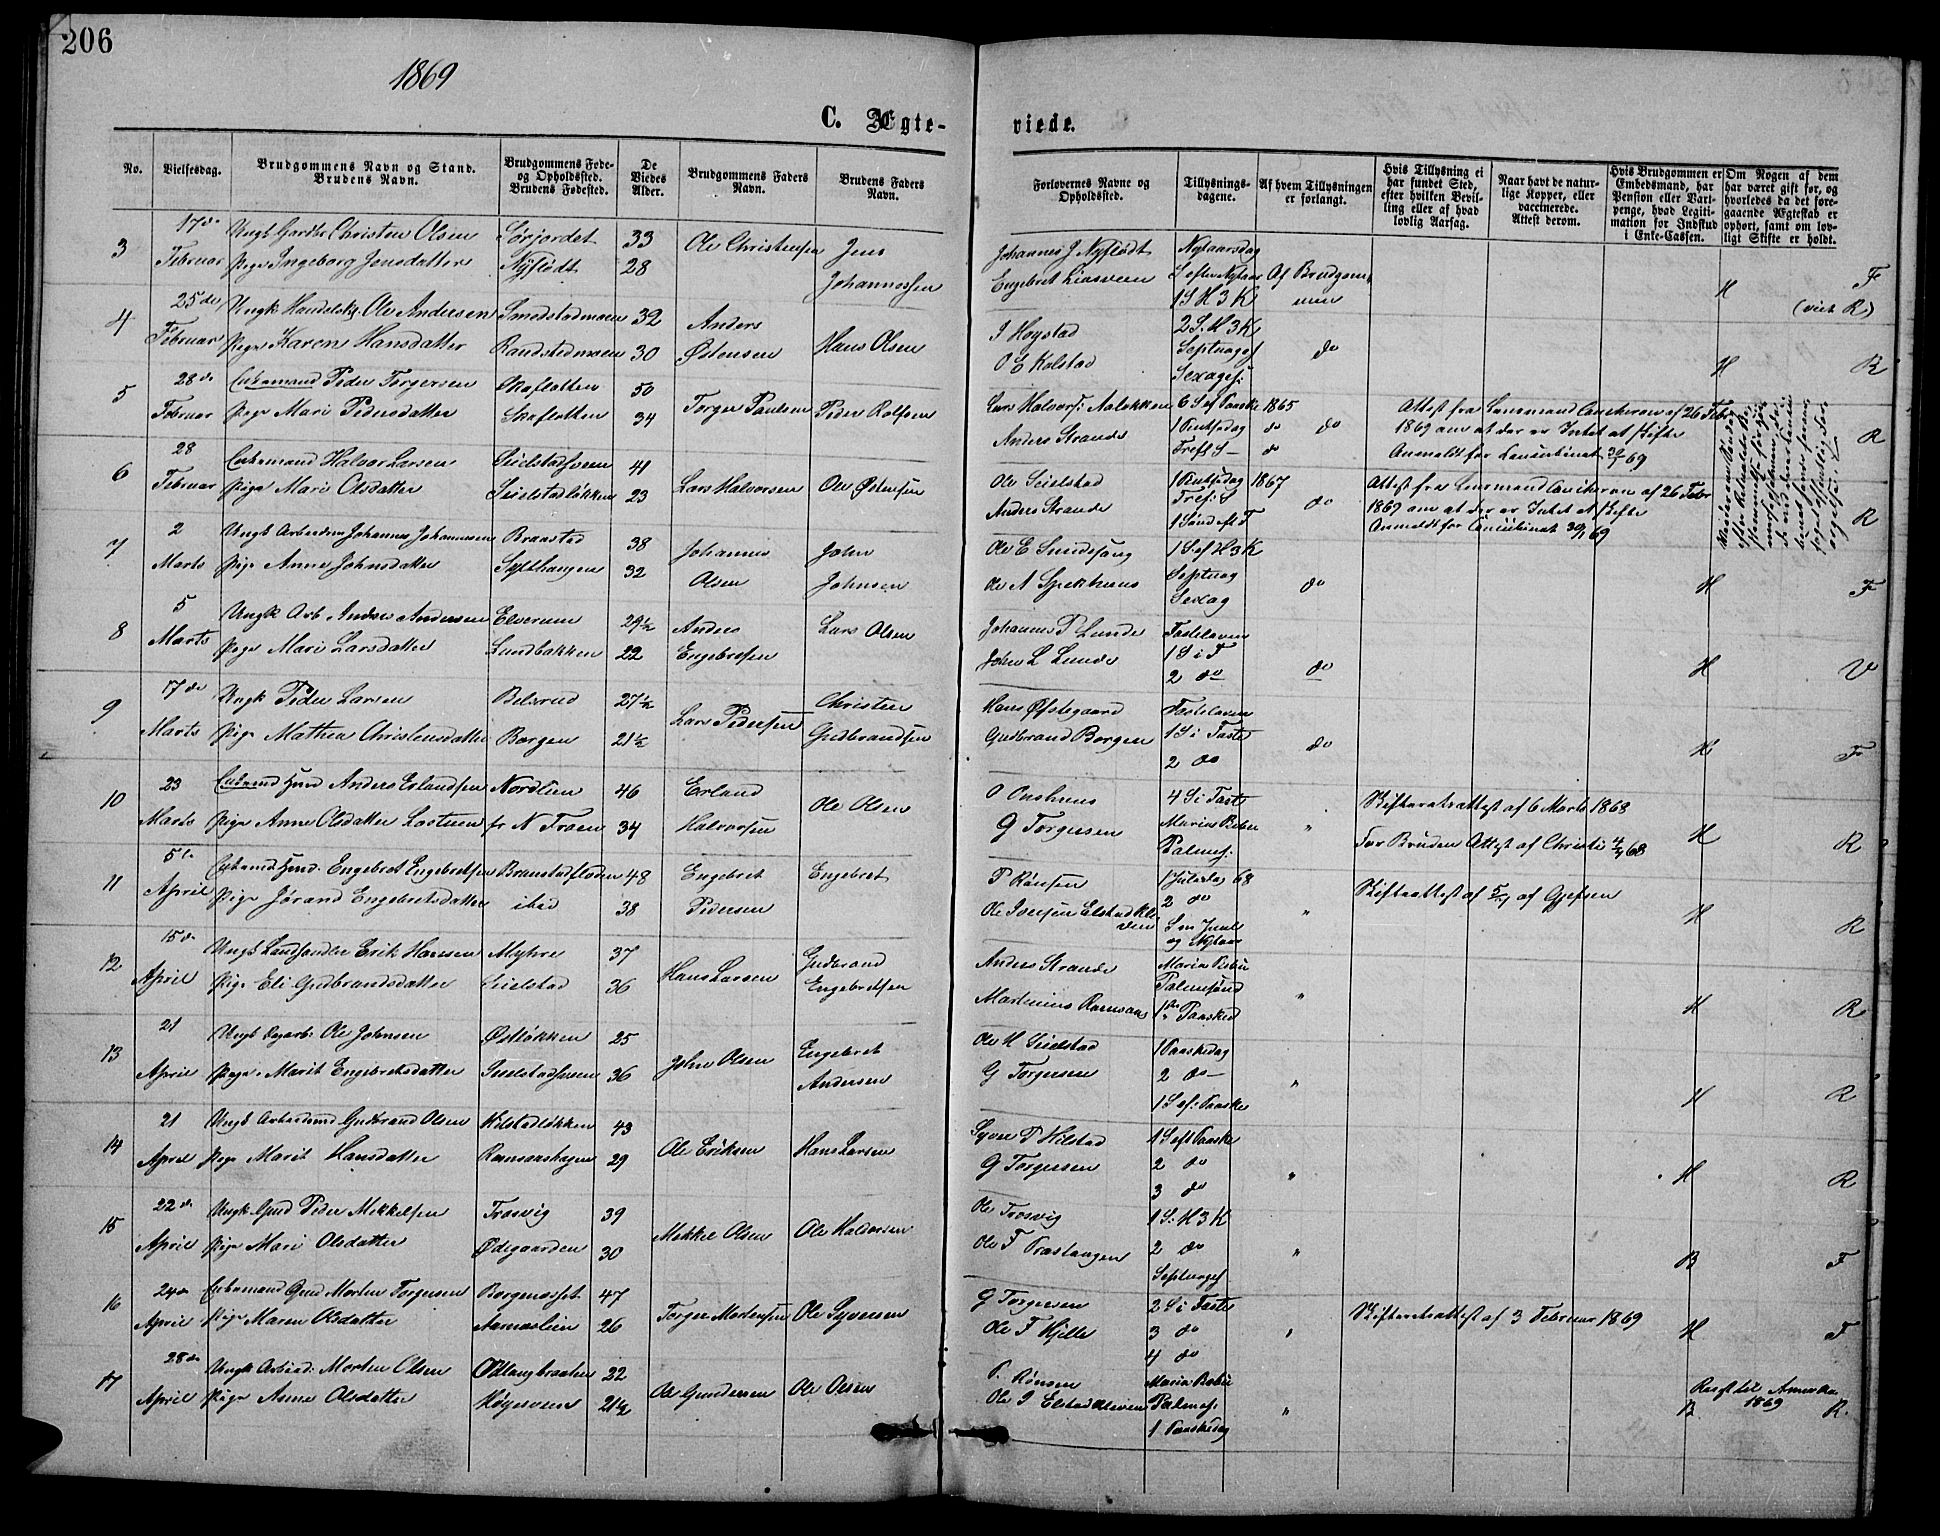 206
1869
C. Ægte-
viede.
No.
Vielsesdag.
Brudgommens Navn og Stand.
Brudens Navn.
Brudgommens Føde-
og Opholdssted.
Brudens Fødested.
De
Viedes
Alder.
Brudgommens Faders
Navn.
Brudens Faders
Navn.
Forlovernes Navne og
Opholdssted.
Tillysnings-
dagene.
Af hvem Tillysningen
er forlangt.
Hvis Tillysning ei
har fundet Sted,
efter hvilken Bevil-
ling eller af hvad
lovlig Aarsag.
Naar havt de natur-
lige Kopper, eller
vaccinerede.
Attest derom.
Hvis Brudgommen er
Embedsmand, har
Pension eller Vart-
penge, hvad Legiti-
mation for Indskud
i Enke-Cassen.
Om Nogen af dem
har været gift før, og
hvorledes da det fore-
gaaende Ægteskab er
ophørt, samt om lov-
ligt Skifte er holdt.
3
17de
Februar
Ungk Gaardbr Christen Olsen
Pige Ingeborg Jensdatter
Sørjordet
Nyflødt
33
28
Ole Christensen
Jens
Johannessen
Johannes J. Nyflødt
Engebret Liasveen
Nytaarsdag
S efter Nytaar
1 S H 3 K
Af Brudgom-
men
H
F
(viet R)
4
25de
Februar
Ungk Handelskj. Ole Andersen
Pige Karen Hansdatter
Smedstadmoen
Raudstedmoen
32
30
Anders
Østensen
Hans Olsen
J Høystad
O E Kolstad
2 S. H 3 K
Septuages
Sexages:
do
H
R
5
28de
Februar
Enkemand Peder Torgersen
Pige Mari Pedersdatter
Skaflotten
Skaflotten
50
34
Torger Paulsen
Peder Rolfsen
Lars Halvors: Aaløkken
Anders Strande
6 S ef Paaske 1865
1 Pintsedag do
Tref S - do
do
Attest fra Lensmand Anchersen af 26 Febr
1869 om at der er Intet at skifte
Anmeldt for Concubinat 30/1 69
R
6
28
Februar
Enkemand Halvor Larsen
Pige Mari Olsdatter
Seielstadsveen
Seielstadløkken
41
23
Lars Halvorsen
Ole Østensen
Ole Seielstad
Anders Strande
1 Pintsedag 1867
Tref: S
1 Sønd eft T
do
Attest fra Lensmand Anchersen af 26 Febr
1869 om at der er Intet at skifte
Anmeldt for Concubinat 30/1 69
R
7
2
Marts
Ungk Arbeidsm Johannes Johannessen
Pige Anne Johnsdatter
Braastad
Sylthaugen
38
32
Johannes
Olsen
John
Johnsen
Ole E Smidesang
Ole A Spikhuus
1 S. ef H 3 K
Septuag
Sexag
do
H
F
8
5
Marts
Ungk Arb. Anders Andersen
Pige Mari Larsdatter
Elverum
Lundbakken
29½
22
Anders
Engebretsen
Lars Olsen
Johannes P Lunde
John L Lunde
Fastelaven
1 S i F
2 do
do
H
V
9
17de
Marts
Ungk Peder Larsen
Pige Mathea Christensdatter
Belsrud
Borgen
27½
21½
Lars Pedersen
Christen
Gudbrandsen
Hans Øfstegaard
Gudbrand Borgen
Fastelaven
1 S i Faste
2 do
do
H
F
10
23
Marts
Enkemd Huusmd Anders Erlandsen
Pige Anne Olsdatter Losteen
Nordlien
fr N Fraen
46
34
Erland
Halvorsen
Ole Olsen
O Onshuus
G Torgersen
4 S i Faste
Maria Bebu
Palmes:
"
Skifteretsattest af 6 Marts 1868
For Bruden Attest af Christi 4/4 68
H
R
11
5te
April
Enkemd Huusmd. Engebret Engebretsen
Pige Jørand Engebretsdatter
Braastadfloden
ibid
48
38
Engebret
Pedersen
Engebret
P Rønsen
Ole Iversen Elstadkle
ven
1 Juledag 68
2 do
S m Juul
og Nytaar
"
Skifteattest af 5/1 af Gjefsen
H
R
12
15de
April
Ungk Landhandler Erik Hansen
Pige Eli Gudbrandsdatter
Myhre
Seielstad
37
36
Hans Larsen
Gudbrand
Engebretsen
Anders Strande
Martinius Ramsaas
Maria Bebu
Palmesønd
1ste Paasked
"
H
R
13
21
April
Ungk Dagarb. Ole Johnsen
Pige Marit Engebretsdatter
Østløkken
Seielstadsveen
25
36
John Olsen
Engebret
Andersen
Ole H Seielstad
G Torgersen
1 Paaskedag
2 do
1 S ef: Paaske
"
H
R
14
21
April
Ungk Arbeidsmd Gudbrand Olsen
Pige Marit Hansdatter
Kilstadløkken
Ramsaashagen
43
29
Ole Eriksen
Hans Larsen
Syver P Kilstad
G Torgersen
1 S eft Paaske
2 do
3 do
"
H
R
15
22de
April
Ungk Gmd Peder Mikkelsen
Pige Mari Olsdatter
Trosvig
Ødegaarden
39
30
Mikkel Olsen
Ole Halvorsen
Ole Trosvig
Ole F Prestangen
1 S. H 3 K
2 do
Septuages
"
B
F
16
24de
April
Enkemand Gmd Morten Torgersen
Pige Maren Olsdatter
Borgenosset
Aamotslien
47
26
Torger Mortensen
Ole Syversen
G Torgersen
Ole F Hjelle
2 S i Faste
3 do
4 do
"
Skifteretsattest af 3 Februar 1869
H
F
17
28de
April
Ungk Arbeid: Morten Olsen
Pige Anne Olsdatter
Ødlaugbraaten
Høgesveen
22
21½
Ole Gundersen
Ole Olsen
P. Rønsen
Ole I Elstadkleven
Maria Bebu
Palmes:
1 Paaskedag
"
B
Reist til Amerika
1869
R.